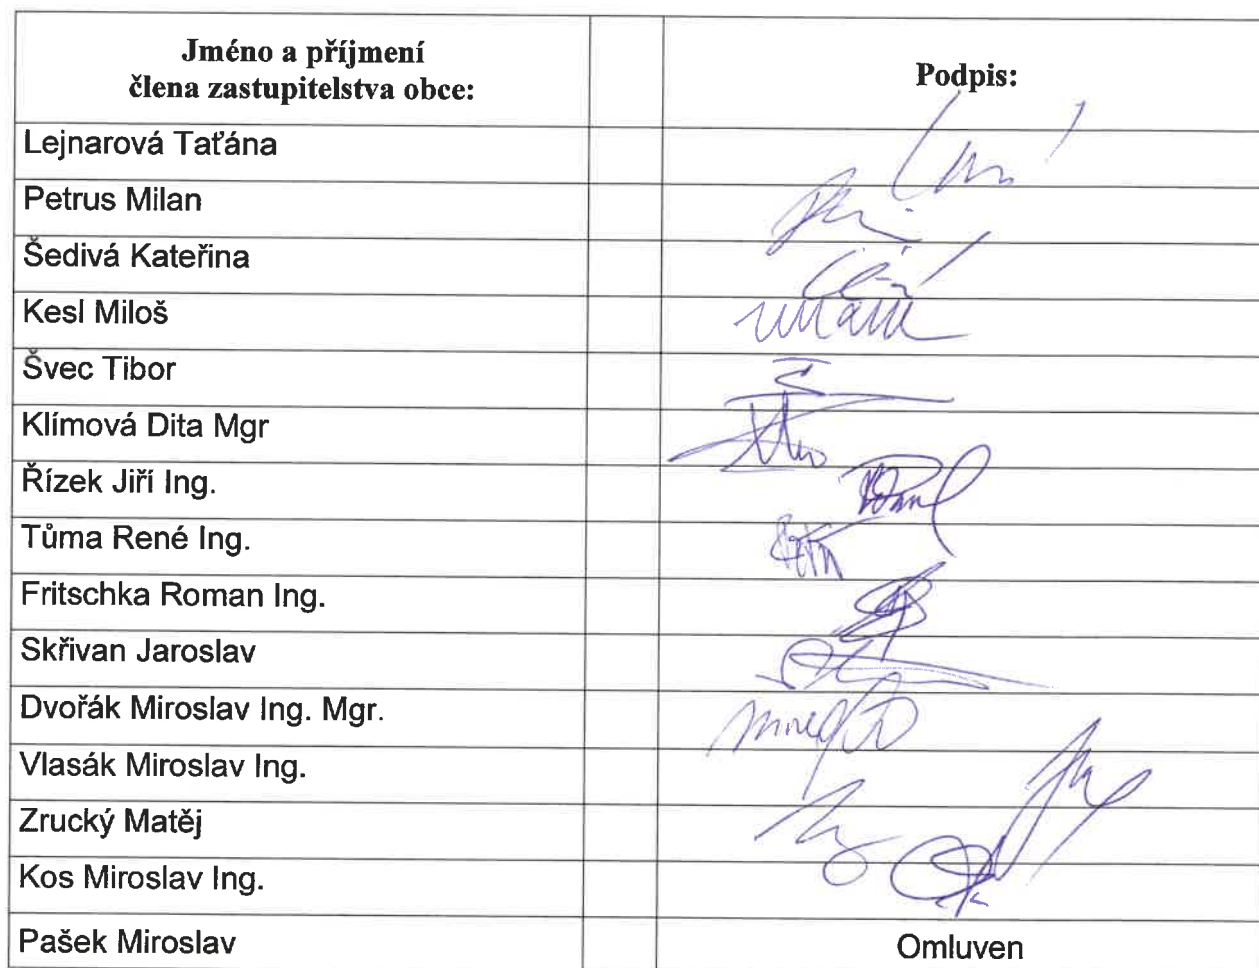 Jméno a příjmení
člena zastupitelstva obce:
Podpis:
Lejnarová Taťána
Petrus Milan
Šedivá Kateřina
Kesl Miloš
Švec Tibor
Klímová Dita Mgr
Řízek Jiří Ing.
Tůma René Ing.
Fritschka Roman Ing.
Skřivan Jaroslav
Dvořák Miroslav Ing. Mgr.
Vlasák Miroslav Ing.
Zrucký Matěj
Kos Miroslav Ing.
Pašek Miroslav Omluven